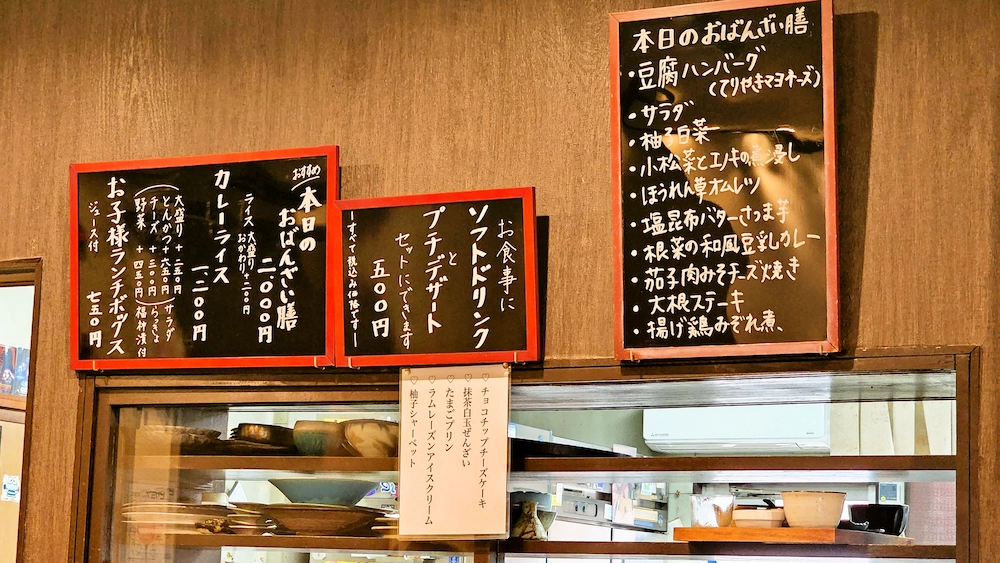 おすすめ
本日の
おばんざい膳
二、〇〇〇円
ライス 大盛り
おかわり +二〇〇円
カレーライス
一、二〇〇円
大盛り +二五〇円
とんかつ +六五〇円
チーズ +三〇〇円
野菜 +四五〇円
サラダ
らっきょ
福神漬付
お子様ランチボックス
ジュース付
七五〇円
お食事に
ソフトドリンク
と
プチデザート
セットにできます
五〇〇円
ーすべて税込み価格ですー
♡ チョコチップチーズケーキ
♡ 抹茶白玉ぜんざい
♡ たまごプリン
♡ ラムレーズンアイスクリーム
♡ 柚子シャーベット
本日のおばんざい膳
・豆腐ハンバーグ
(てりやきマヨネーズ)
・サラダ
・柚子白菜
・小松菜とエノキの煮浸し
・ほうれん草オムレツ
・塩昆布バターさつま芋
・根菜の和風豆乳カレー
・茄子肉みそチーズ焼き
・大根ステーキ
・揚げ鶏みぞれ煮、